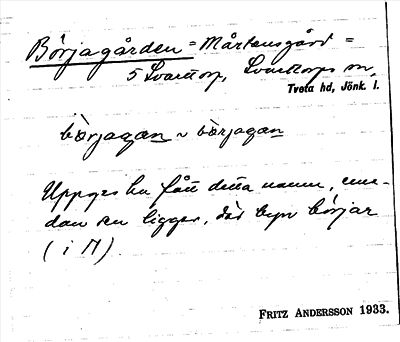 Börjagården = Mårtensgård =
5 Svarttorp, Svarttorps sn,
Tveta hd, Jönk. l.
bœrjagan ~ bœrjagan
Uppges ha fått detta namn, eme-
dan den ligger, där byn börjar
( i N ).
FRITZ ANDERSSON 1933.